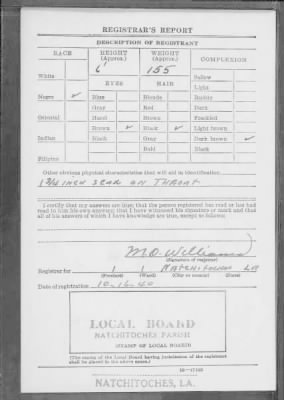 REGISTRAR'S REPORT
DESCRIPTION OF REGISTRANT
RACE HEIGHT (Approx.) WEIGHT (Approx.) COMPLEXION
6' 155
White Sallow
EYES HAIR Light
Negro ✓ Blue Blonde Ruddy
Gray Red Dark
Oriental Hazel Brown Freckled
Brown ✓ Black ✓ Light brown
Indian Black Gray Dark brown ✓
Bald Black
Filipino
Other obvious physical characteristics that will aid in identification
1 3/4 INCH SCAR ON THROAT
I certify that my answers are true; that the person registered has read or has had
read to him his own answers; that I have witnessed his signature or mark and that
all of his answers of which I have knowledge are true, except as follows:
M.O. Williams
(Signature of registrar)
Registrar for 1 1 NATCHITOCHES LA
(Precinct) (Ward) (City or county) (State)
Date of registration 10-16-40
LOCAL BOARD
NATCHITOCHES PARISH
(STAMP OF LOCAL BOARD)
(The stamp of the Local Board having jurisdiction of the registrant
shall be placed in the above space.)
NATCHITOCHES, LA.